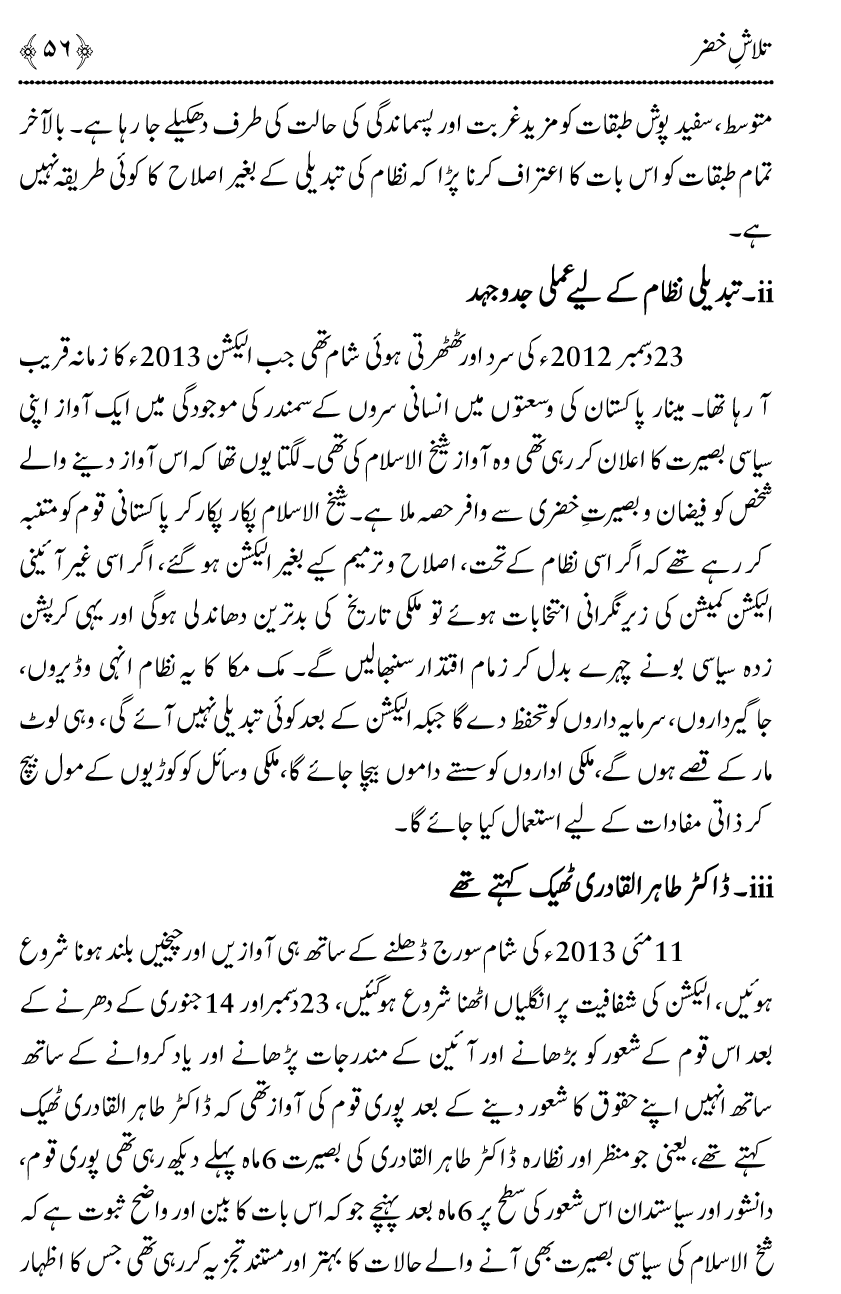 تلاشِ خضر ﴿۵۶﴾
متوسط، سفید پوش طبقات کو مزید غربت اور پسماندگی کی حالت کی طرف دھکیلے جا رہا ہے۔ بالآخر
تمام طبقات کو اس بات کا اعتراف کرنا پڑا کہ نظام کی تبدیلی کے بغیر اصلاح کا کوئی طریقہ نہیں
ہے۔
ii۔ تبدیلی نظام کے لیے عملی جدوجہد
23 دسمبر 2012ء کی سرد اور ٹھٹھرتی ہوئی شام تھی جب الیکشن 2013ء کا زمانہ قریب
آ رہا تھا۔ مینار پاکستان کی وسعتوں میں انسانی سروں کے سمندر کی موجودگی میں ایک آواز اپنی
سیاسی بصیرت کا اعلان کر رہی تھی وہ آواز شیخ الاسلام کی تھی۔ لگتا یوں تھا کہ اس آواز دینے والے
شخص کو فیضان و بصیرتِ خضری سے وافر حصہ ملا ہے۔ شیخ الاسلام پکار پکار کر پاکستانی قوم کو متنبہ
کر رہے تھے کہ اگر اسی نظام کے تحت، اصلاح و ترمیم کیے بغیر الیکشن ہو گئے، اگر اسی غیر آئینی
الیکشن کمیشن کی زیر نگرانی انتخابات ہوئے تو ملکی تاریخ کی بدترین دھاندلی ہوگی اور یہی کرپشن
زدہ سیاسی بونے چہرے بدل کر زمام اقتدار سنبھالیں گے۔ مک مکا کا یہ نظام انہی وڈیروں،
جاگیرداروں، سرمایہ داروں کو تحفظ دے گا جبکہ الیکشن کے بعد کوئی تبدیلی نہیں آئے گی، وہی لوٹ
مار کے قصے ہوں گے، ملکی اداروں کو سستے داموں بیچا جائے گا، ملکی وسائل کو کوڑیوں کے مول بیچ
کر ذاتی مفادات کے لیے استعمال کیا جائے گا۔
iii۔ ڈاکٹر طاہر القادری ٹھیک کہتے تھے
11 مئی 2013ء کی شام سورج ڈھلنے کے ساتھ ہی آوازیں اور چیخیں بلند ہونا شروع
ہوئیں، الیکشن کی شفافیت پر انگلیاں اٹھنا شروع ہوگئیں، 23 دسمبر اور 14 جنوری کے دھرنے کے
بعد اس قوم کے شعور کو بڑھانے اور آئین کے مندرجات پڑھانے اور یاد کروانے کے ساتھ
ساتھ انہیں اپنے حقوق کا شعور دینے کے بعد پوری قوم کی آواز تھی کہ ڈاکٹر طاہر القادری ٹھیک
کہتے تھے، یعنی جو منظر اور نظارہ ڈاکٹر طاہر القادری کی بصیرت 6 ماہ پہلے دیکھ رہی تھی پوری قوم،
دانشور اور سیاستدان اس شعور کی سطح پر 6 ماہ بعد پہنچے جو کہ اس بات کا بین اور واضح ثبوت ہے کہ
شخ الاسلام کی سیاسی بصیرت بھی آنے والے حالات کا بہتر اور مستند تجزیہ کر رہی تھی جس کا اظہار